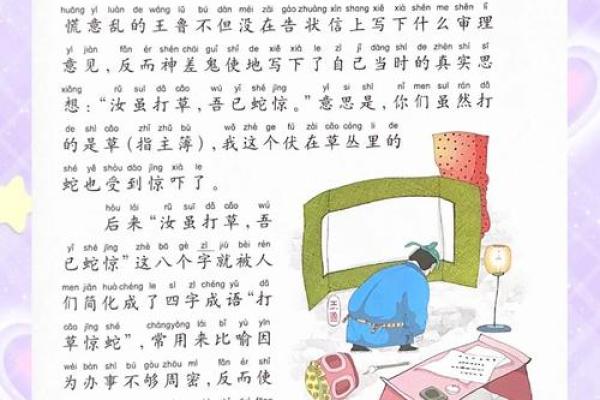 huāng yì luàn de wáng lǔ bú dàn méi zài gào zhuàng xìn shang xiě xià shén me shěn lǐ
慌意乱的王鲁不但没在告状信上写下什么审理
yì jiàn fǎn ér shén chāi guǐ shǐ de xiě xià le zì jǐ dāng shí de zhēn shí sī
意见，反而神差鬼使地写下了自己当时的真实思
xiǎng rǔ suī dǎ cǎo wú yǐ shé jīng yì si shì nǐ men suī rán dǎ
想：“汝虽打草，吾已蛇惊。”意思是，你们虽然打
de shì cǎo zhǐ zhǔ bù wǒ zhè ge fú zài cǎo cóng li de
的是草（指主簿），我这个伏在草丛里的
shé yě shòu dào jīng xià le
蛇也受到惊吓了。
hòu lái rǔ suī dǎ cǎo wú
后来“汝虽打草，吾
yǐ shé jīng zhè bā gè zì jiù bèi rén
已蛇惊”这八个字就被人
men jiǎn huà chéng le sì zì chéng yǔ dǎ
们简化成了四字成语“打
cǎo jīng shé cháng yòng lái bǐ yù yīn
草惊蛇”，常用来比喻因
wèi bàn shì bú gòu zhōu mì fǎn ér shǐ
为办事不够周密，反而使